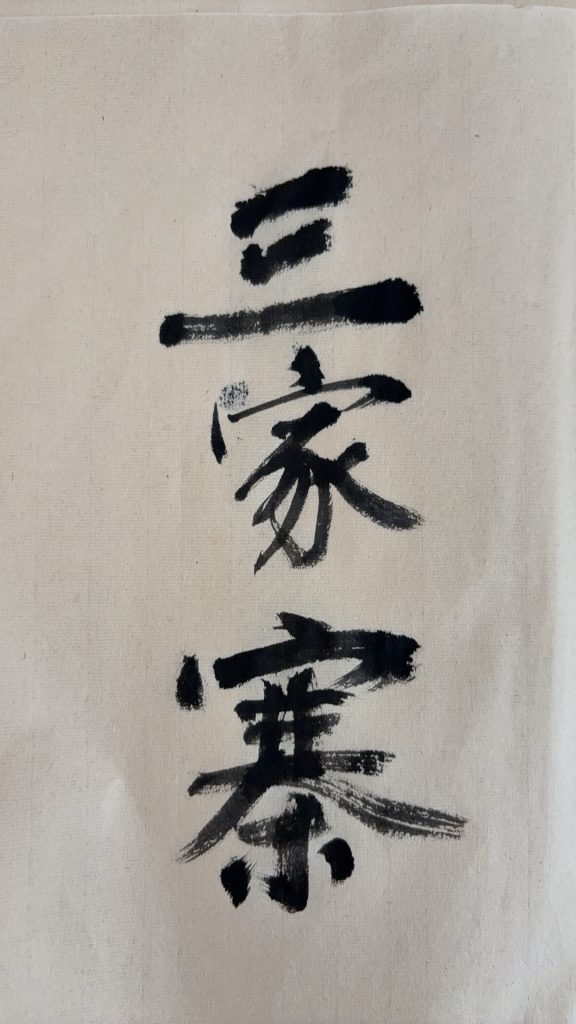 三家寨